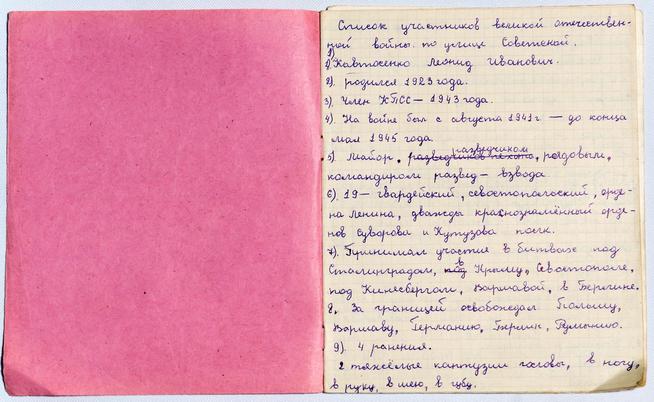 Список участников великой отечествен-
ной войны по улице Советской.
1)
Кавтосенко Леонид Иванович.
2). родился 1923 года.
3). Член КПСС – 1943 года.
4). На войне был с августа 1941 г – до конца
мая 1945 года.
разведчиком
5). Майор, разведчиков пехота, рядовым,
командиром развед– взвода.
6). 19 – гвардейский, севостопольский, орде-
на Ленина, дважды краснознамённый орде-
нов Суворова и Кутузова полк.
7). Принимал участие в битвах под
Сталинградом, под в Крыму, Севостополе,
под Кинесбергом, Варшавой, в Берлине.
8, За границей освобождал Польшу,
Варшаву, Германию, Берлин, Румынию.
9). 4 ранения.
2 тяжёлые кантузии головы, в ногу,
в руку, в шею, в губу.